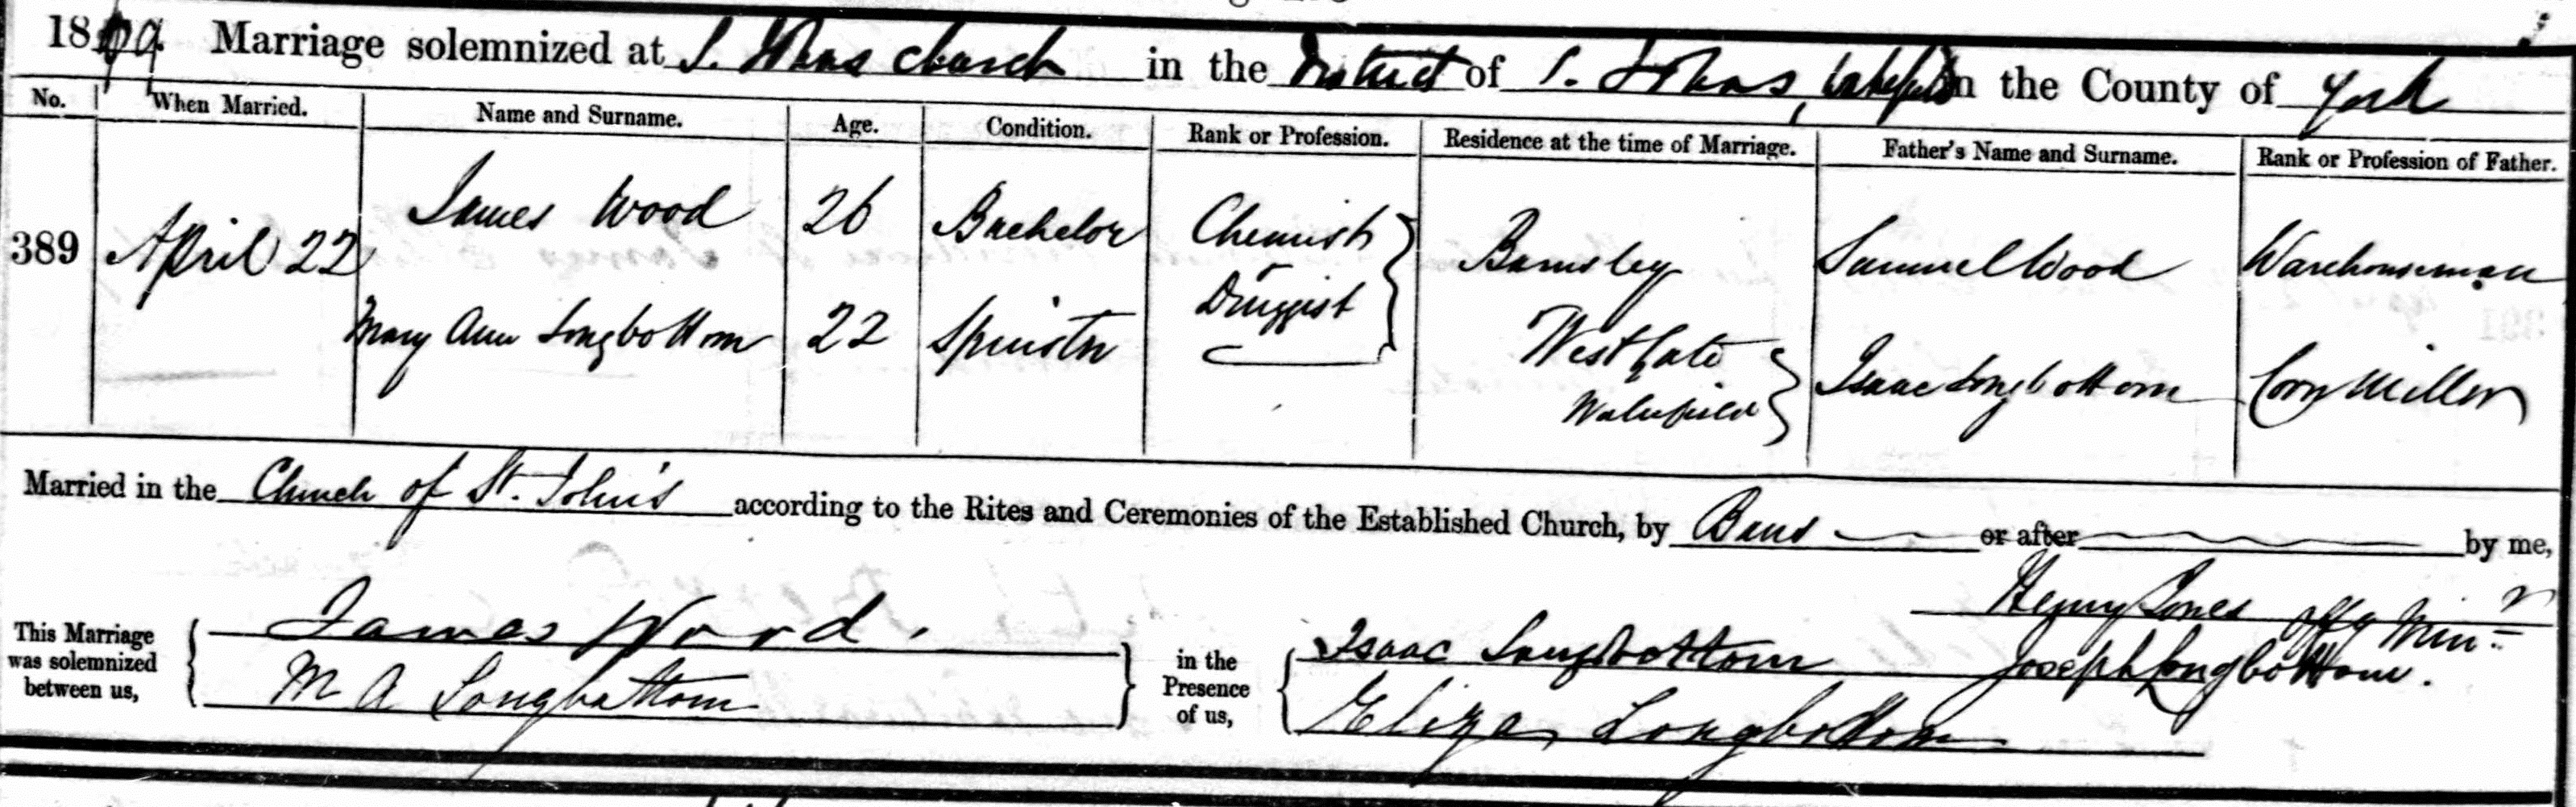 1869 Marriage solemnized at S. Johns church in the District of S. Johns, Wakefield in the County of York
No. When Married. Name and Surname. Age. Condition. Rank or Profession. Residence at the time of Marriage. Father's Name and Surname. Rank or Profession of Father.
389 April 22 James Wood 26 Bachelor Chemist Druggist Barnsley Samuel Wood Warehouseman
Mary Ann Longbottom 22 Spinster West Gate Wakefield Isaac Longbottom Corn Miller
Married in the Church of St. John's according to the Rites and Ceremonies of the Established Church, by Bans or after by me,
Henry Jones Offg Minr
This Marriage was solemnized between us, James Wood. in the Presence of us, Isaac Longbottom Joseph Longbottom.
M A Longbottom Eliza Longbottom